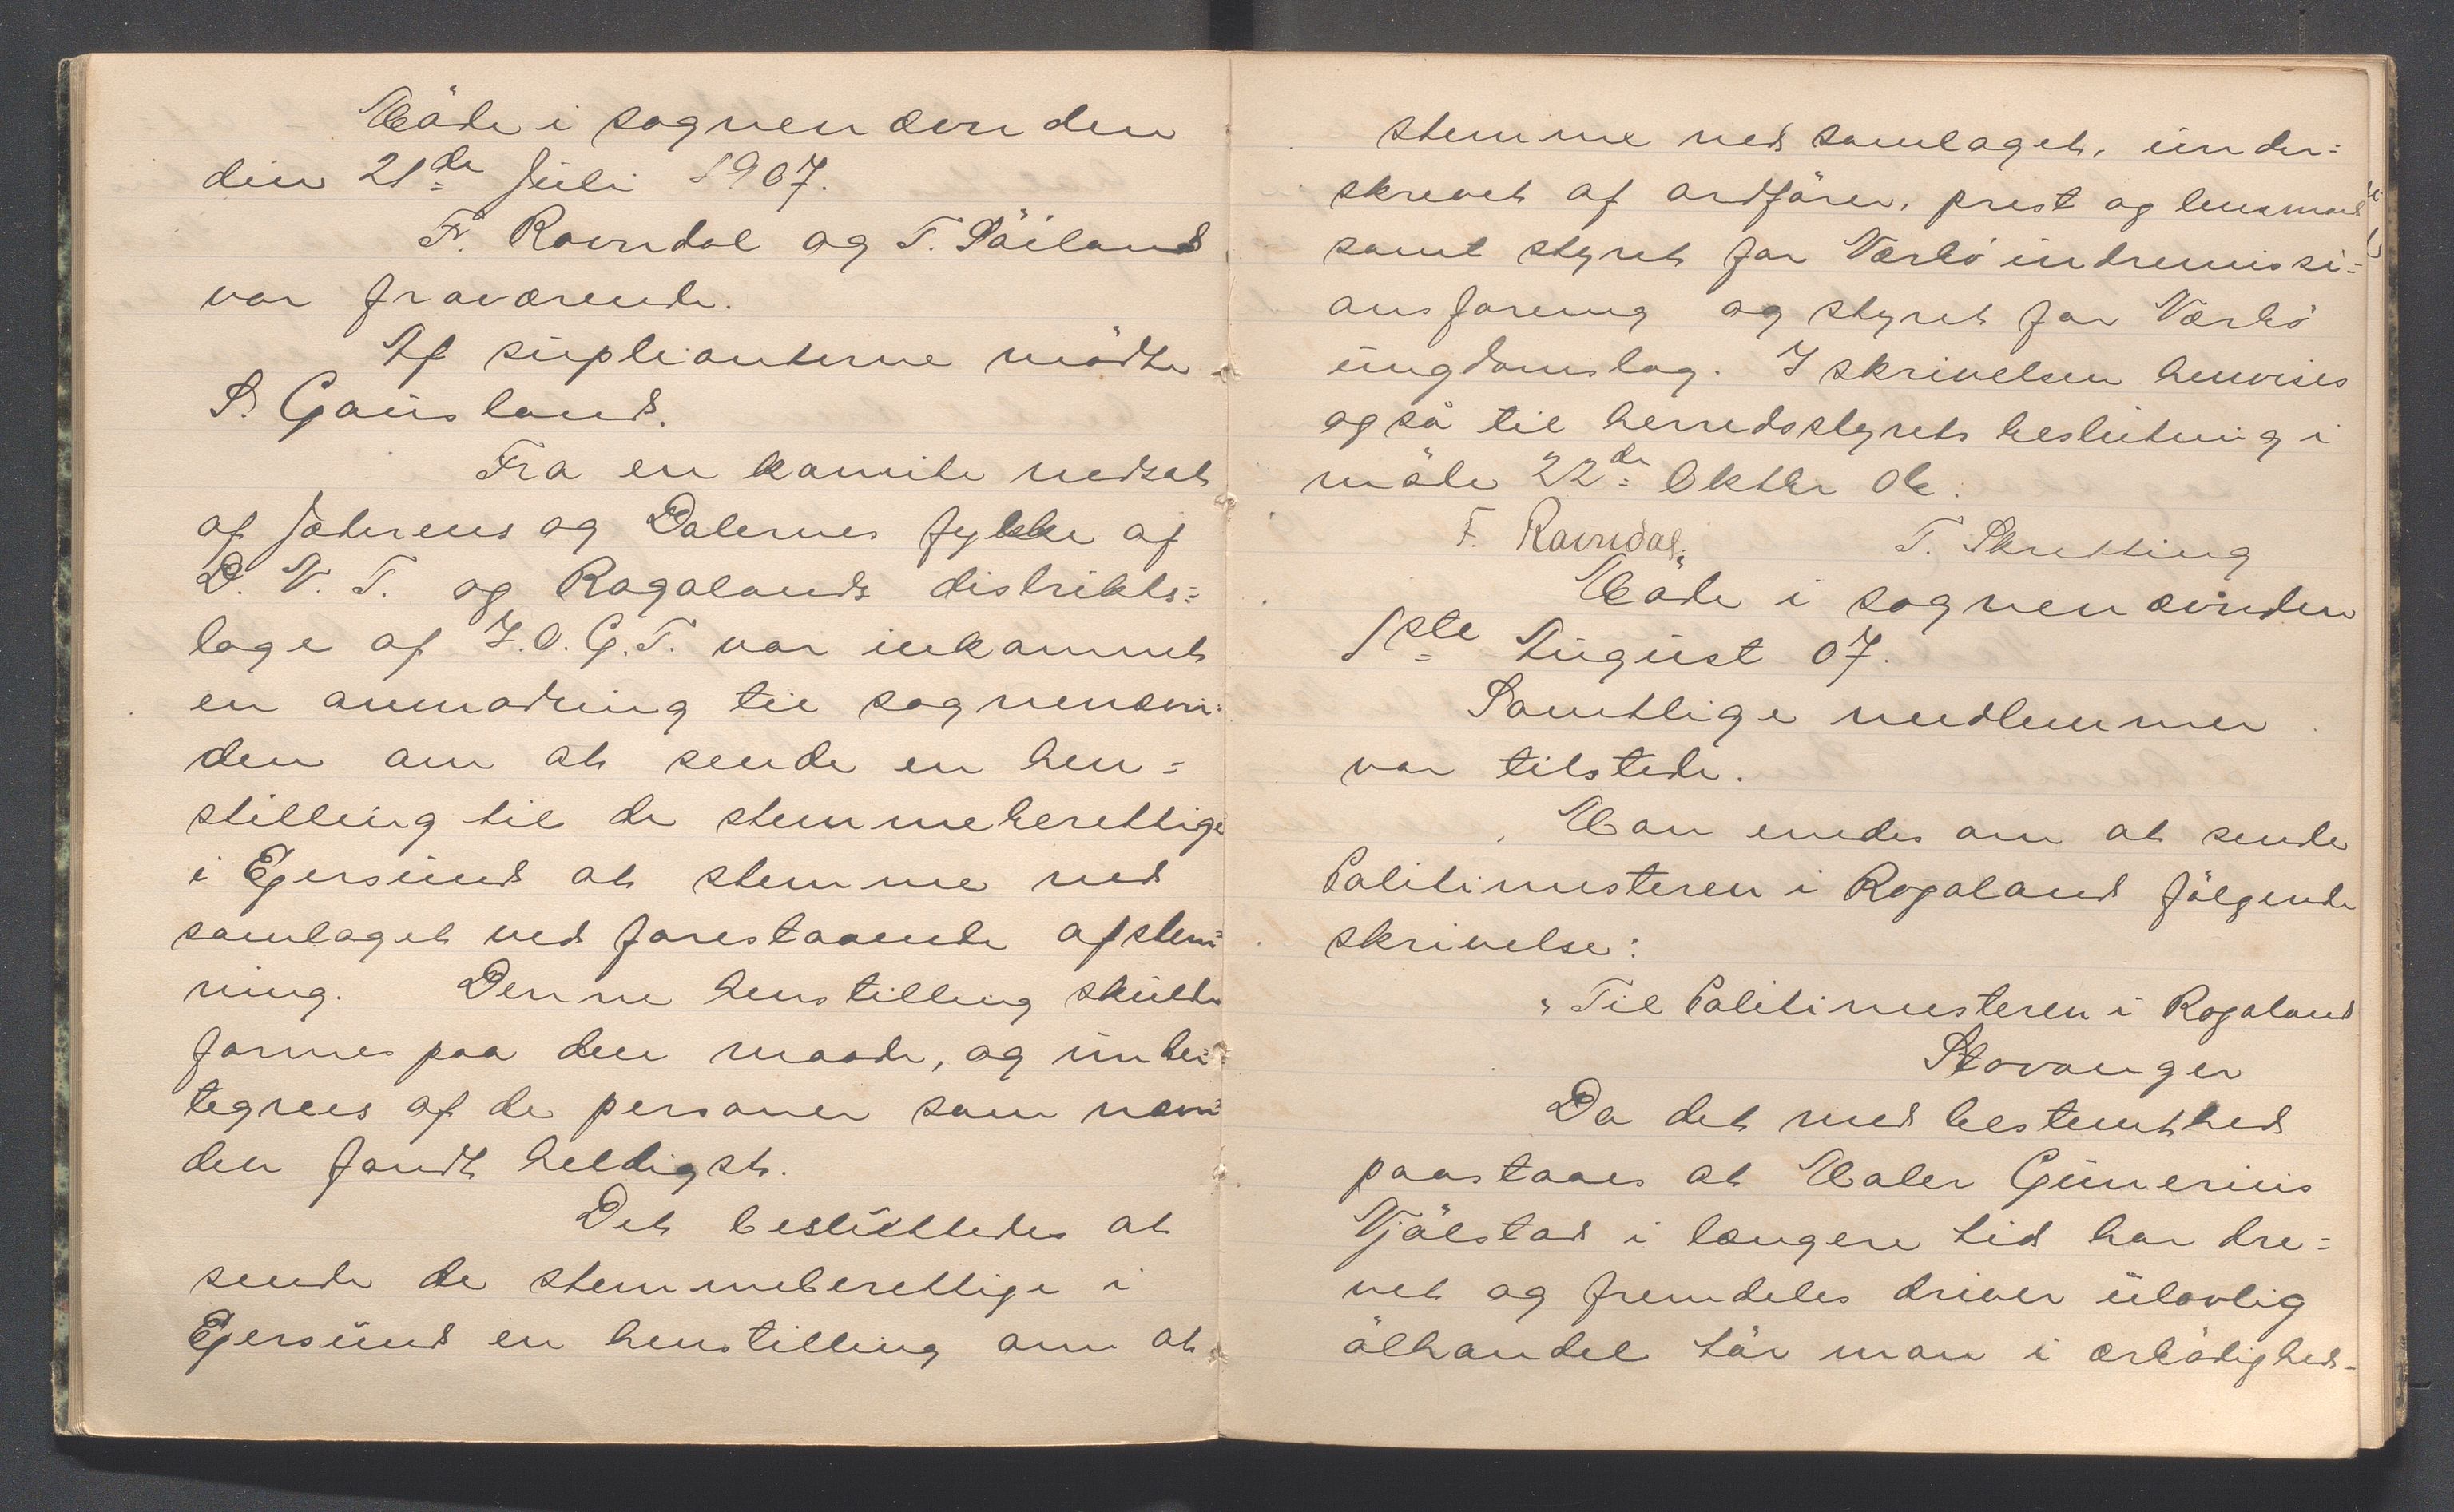 Möde i sognenævnden
den 21de Juli 1907.
Fr. Ravndal og T. Söiland
var fraværende.
Af suplianterne mödte
S. Gausland.
Fra en komite nedsat
af Jæderens og Dalernes fylke af
D. N. T. og Rogalands distrikts=
loge af I.O.G.T. var inkommet
en anmodning til sognenævn=
den om at sende en hen=
stilling til de stemmeberettige
i Egersund at stemme ned
samlaget ved forestaaende afstem=
ning. Denne henstilling skulde
formes paa den maade, og under=
tegnes af de personer som nævn=
den fandt heldigst.
Det besluttedes at
sende de stemmeberettige i
Egersund en henstilling om at
stemme ned samlaget, under=
skrevet af ordförer, prest og lensmand
samt styret for Værhö indremissi=
onsforening og styret for Værhö
ungdomslag. I skrivelsen henvises
også til herredsstyrets beslutning i
möde 22de Oktbr 06.
F. Ravndal. T. Skretting
Möde i sognenævnden
1ste August 07.
Samtlige medlemmer
var tilstede.
Man enedes om at sende
Politimesteren i Rogaland fölgende
skrivelse:
"Til Politimesteren i Rogaland
Stavanger
Da det med bestemthed
paastaaes at Maler Gunerius
Njölstad i længere tid har dre=
vet og fremdeles driver ulovlig
ölhandel tör man i ærbödighed